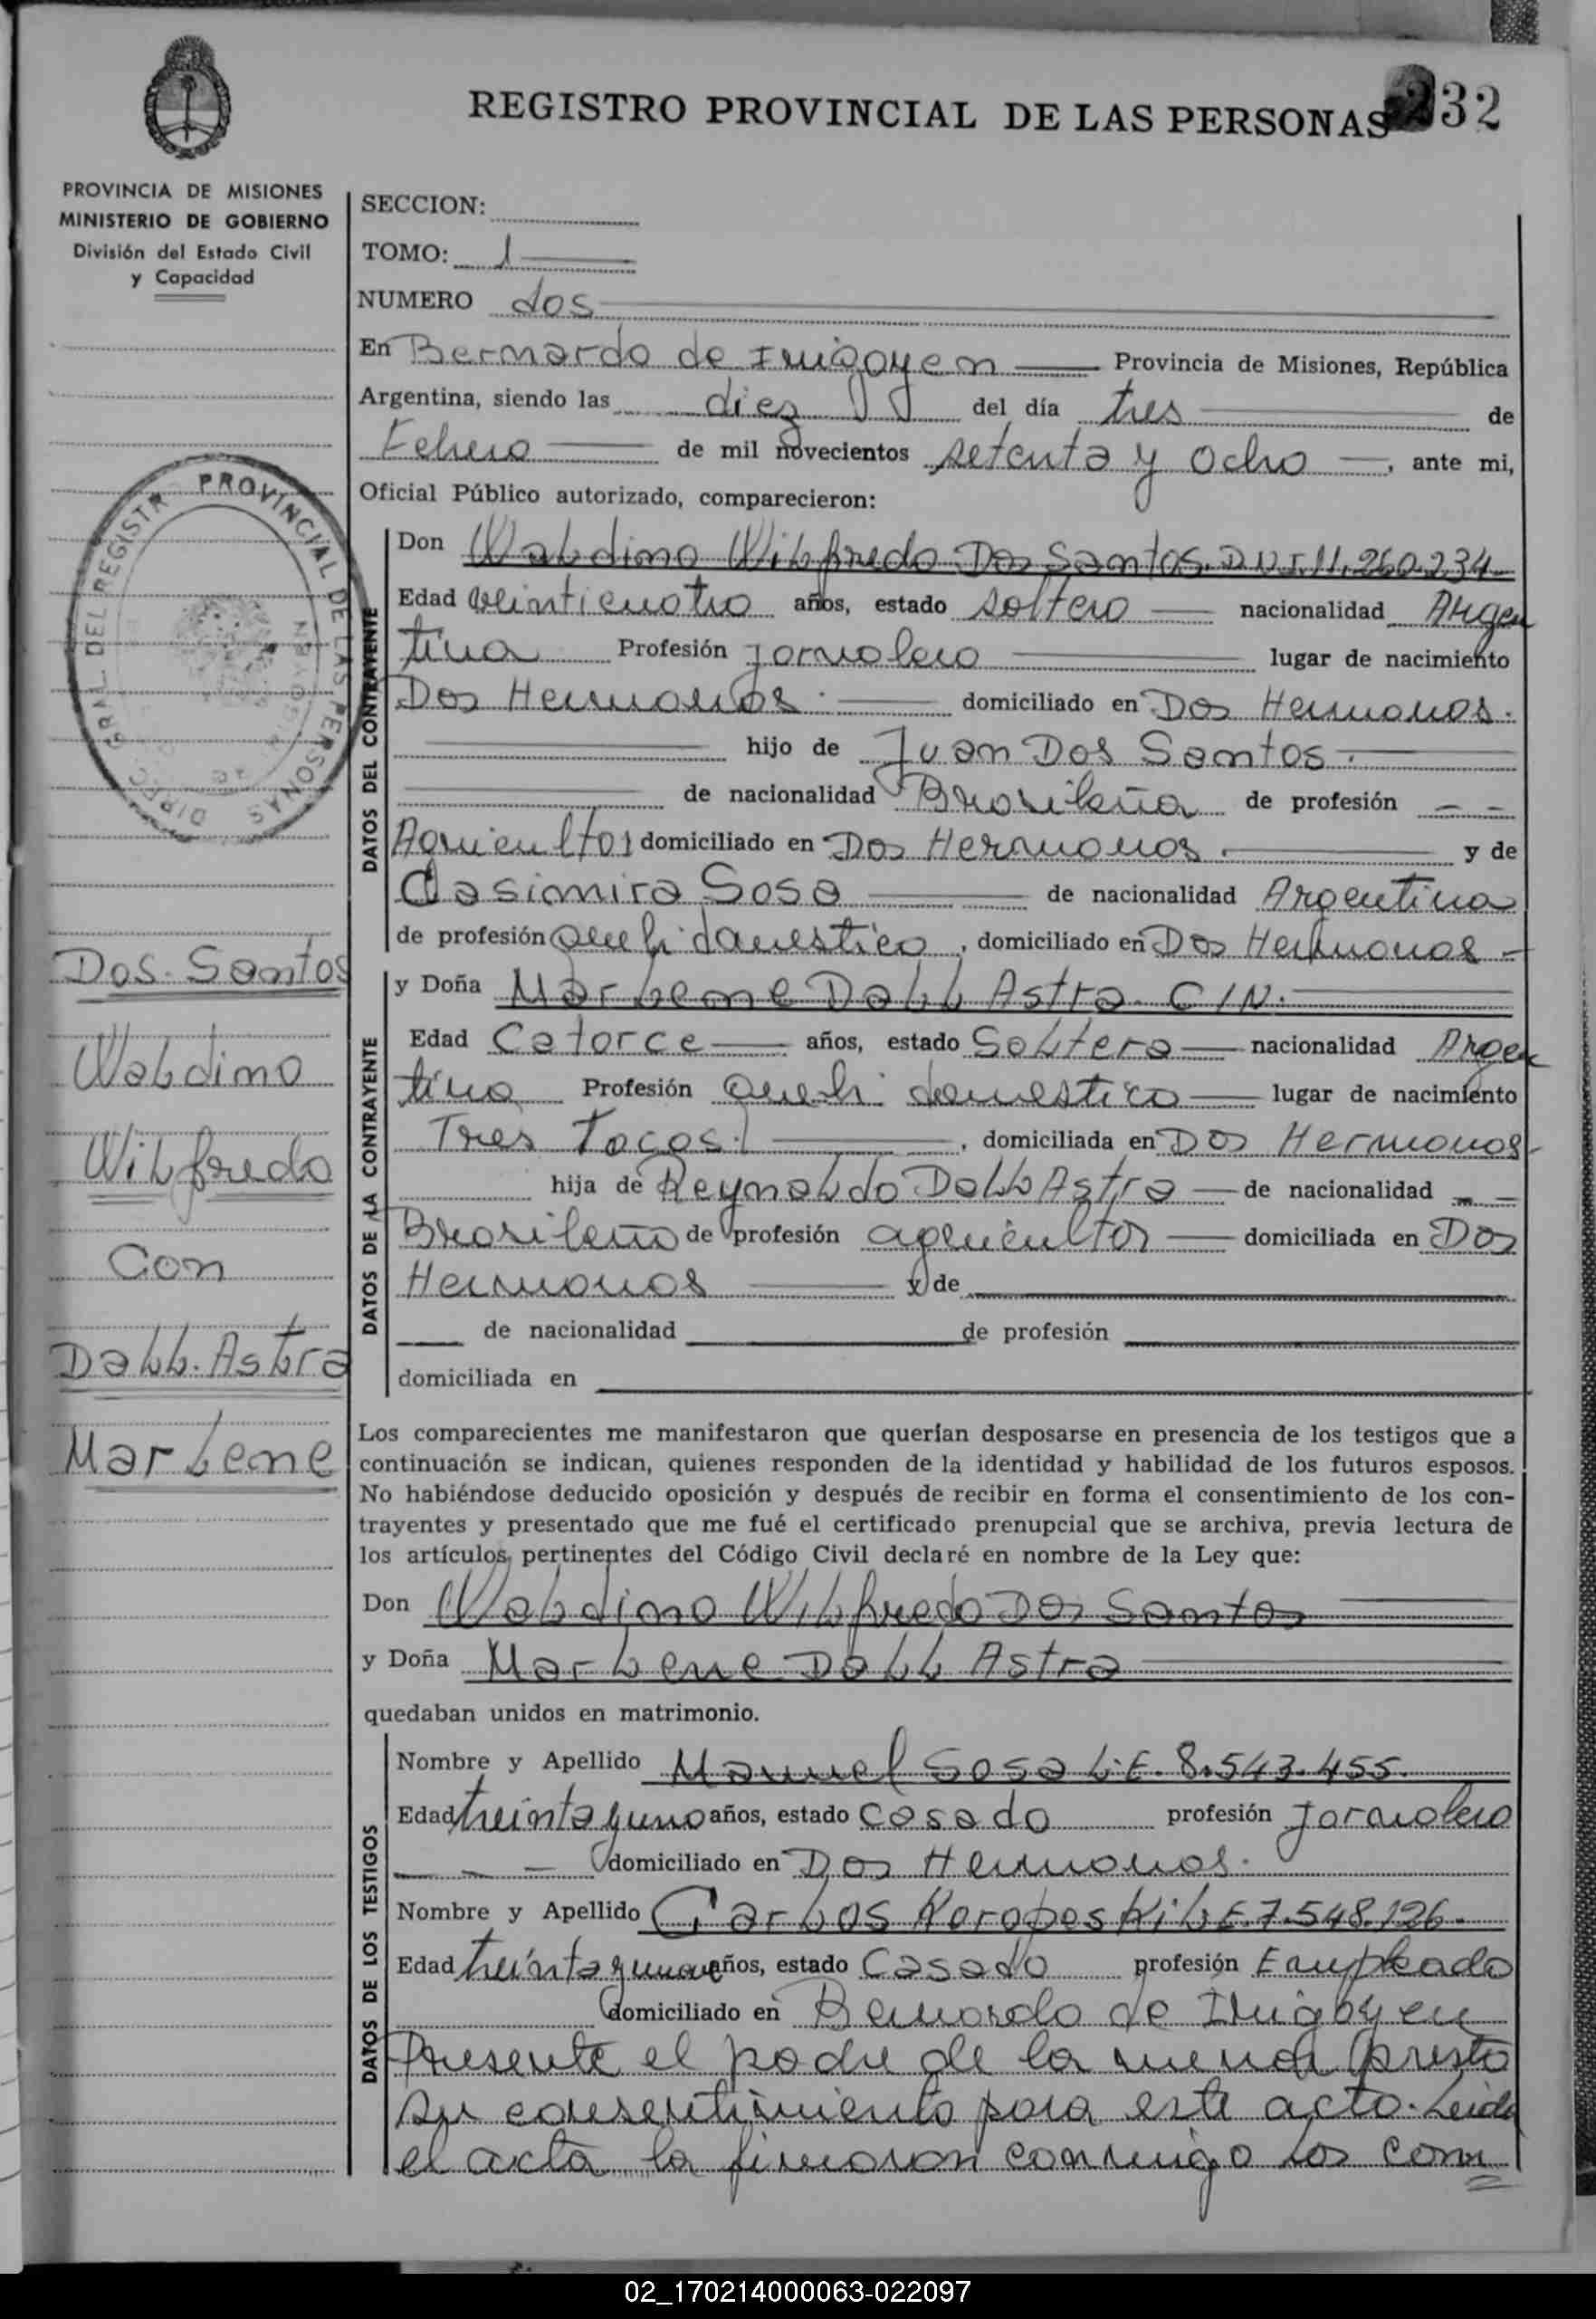 REGISTRO PROVINCIAL DE LAS PERSONAS 232
PROVINCIA DE MISIONES
MINISTERIO DE GOBIERNO
División del Estado Civil
y Capacidad
SECCION:
TOMO: 1
NUMERO dos
En Bernardo de Irrigoyen Provincia de Misiones, República
Argentina, siendo las diez del día tres de
Febrero de mil novecientos setenta y ocho, ante mi,
Oficial Público autorizado, comparecieron:
DIREC GRAL DEL REGISTR PROVINCIAL DE LAS PERSONAS
DATOS DEL CONTRAYENTE
Don Waldino Wilfredo Dos Santos. D.N.I. 11.260.234
Edad veinticuatro años, estado soltero nacionalidad Argen
tina Profesión jornalero lugar de nacimiento
Dos Hermanos. domiciliado en Dos Hermanos.
hijo de Juan Dos Santos.
de nacionalidad Brasileña de profesión
Agricultor domiciliado en Dos Hermanos. y de
Casimira Sosa de nacionalidad Argentina
de profesión queh. domestico, domiciliado en Dos Hermanos
Dos. Santos
Waldino
Wilfredo
Con
Dall. Astra
Marlene
DATOS DE LA CONTRAYENTE
y Doña Marlene Dall Astra. C/N.
Edad Catorce años, estado Soltera nacionalidad Argen
tina Profesión queh. domestico lugar de nacimiento
Tres Tocos. , domiciliada en Dos Hermanos
hija de Reynaldo Dall Astra de nacionalidad
Brasileño de profesión agricultor domiciliada en Dos
Hermanos y de
de nacionalidad de profesión
domiciliada en
Los comparecientes me manifestaron que querían desposarse en presencia de los testigos que a
continuación se indican, quienes responden de la identidad y habilidad de los futuros esposos.
No habiéndose deducido oposición y después de recibir en forma el consentimiento de los con-
trayentes y presentado que me fué el certificado prenupcial que se archiva, previa lectura de
los artículos, pertinentes del Código Civil declaré en nombre de la Ley que:
Don Waldino Wilfredo Dos Santos
y Doña Marlene Dall Astra
quedaban unidos en matrimonio.
DATOS DE LOS TESTIGOS
Nombre y Apellido Manuel Sosa L.E. 8.543.455.
Edad treinta y uno años, estado casado profesión jornalero
domiciliado en Dos Hermanos.
Nombre y Apellido Carlos Koropeski L.E. 7.548.126.
Edad treinta y nueve años, estado casado profesión Empleado
domiciliado en Bernardo de Irigoyen
Presente el padre de la menor presto
su consentimiento para este acto. Leida
el acta la firmaron conmigo los com
02_170214000063-022097